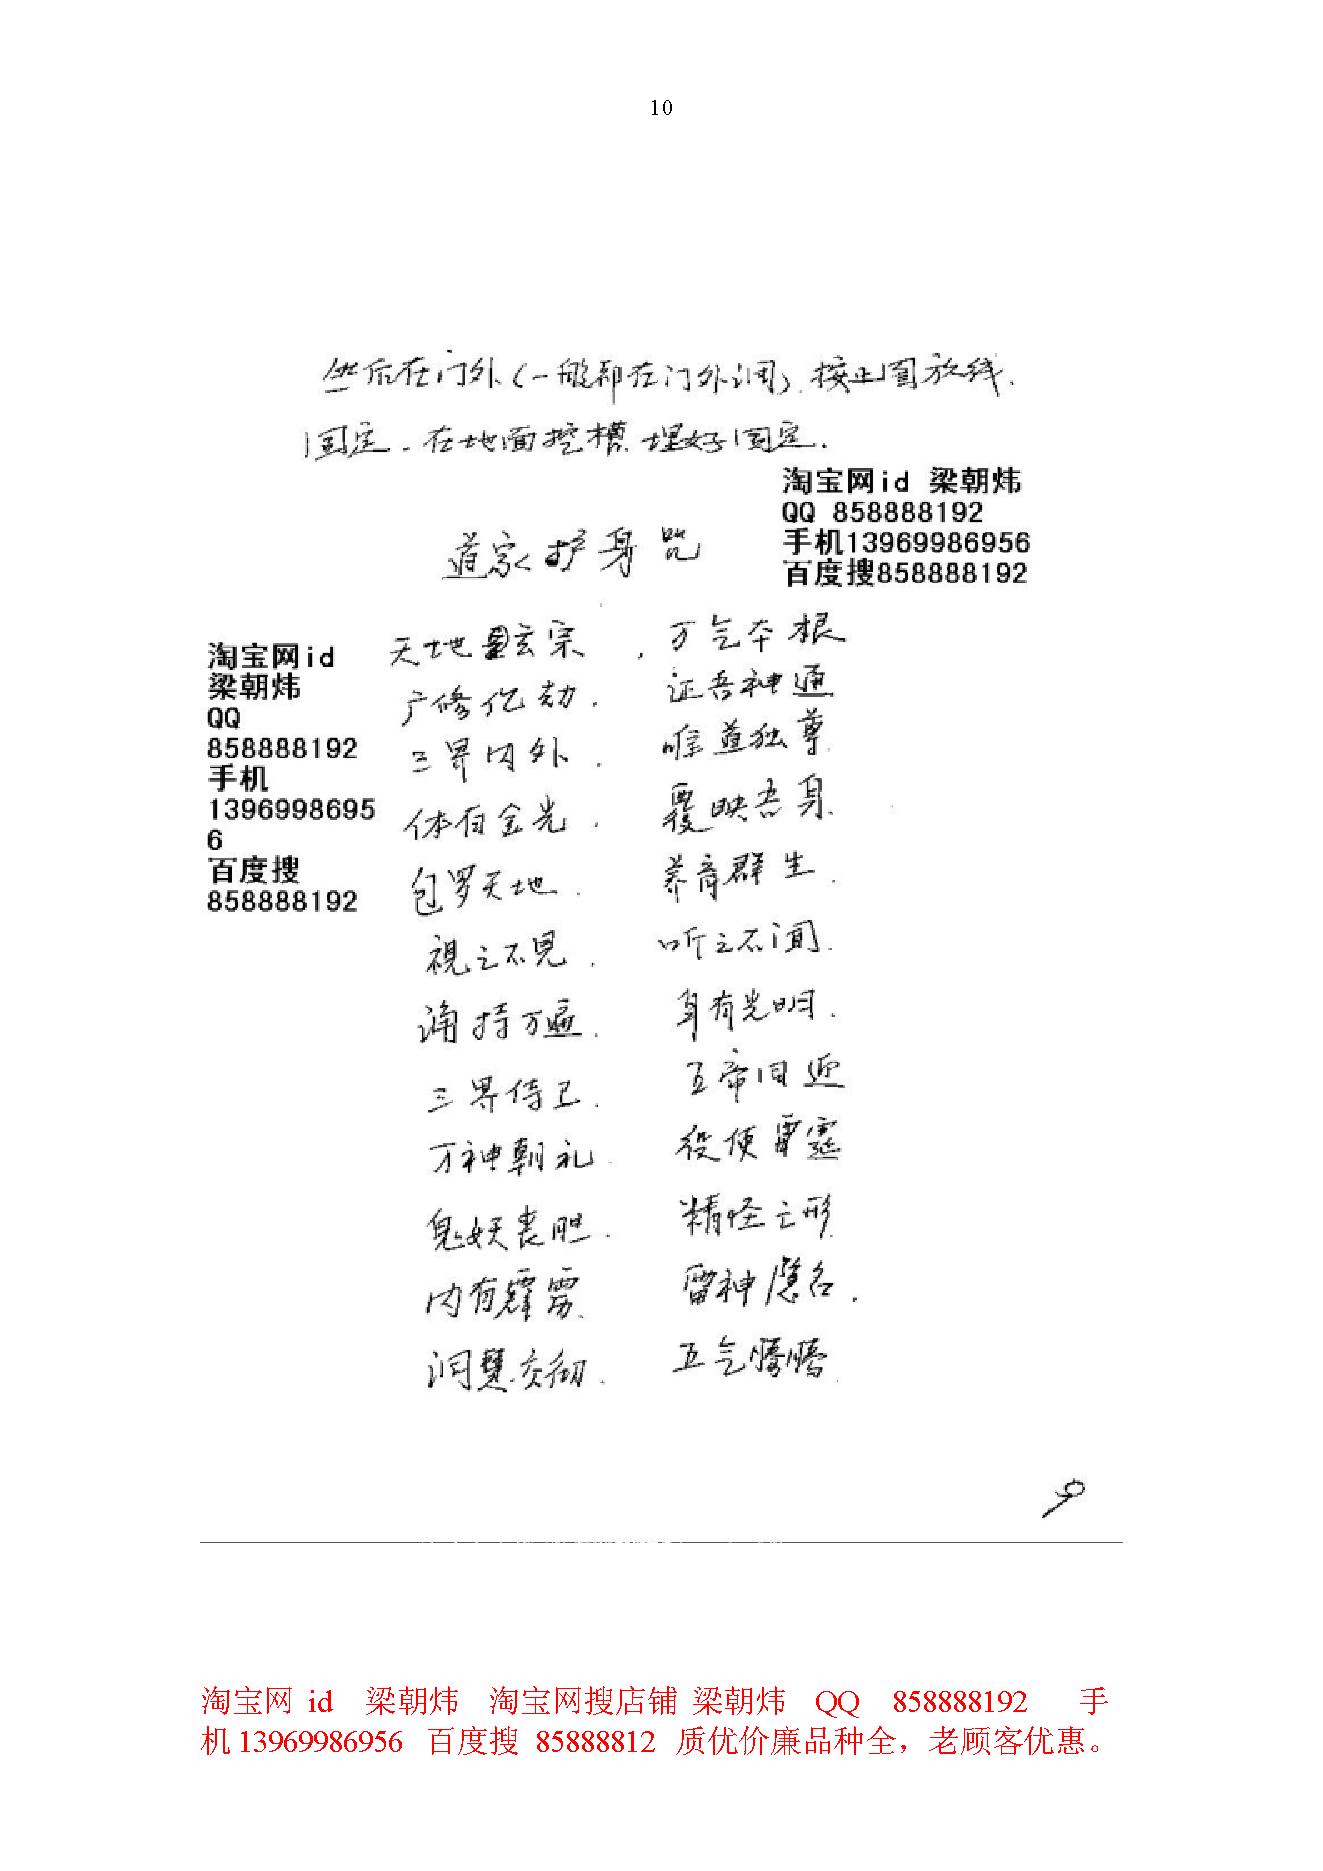 10
然后在门外（一般都在门外调）.按正圆放线.
固定.在地面挖槽.埋好固定.
淘宝网id 梁朝炜
QQ 858888192
手机13969986956
百度搜858888192
道家护身咒
淘宝网id
梁朝炜
QQ
858888192
手机
1396998695
6
百度搜
858888192
天地玄宗，万气本根
广修亿劫.证吾神通
三界内外.唯道独尊
体有金光.覆映吾身.
包罗天地.养育群生.
視之不見.听之不闻.
诵持万遍.身有光明.
三界侍卫.五帝司迎
万神朝礼.役使雷霆
鬼妖丧胆.精怪亡形
内有霹雳.雷神隐名.
洞慧交彻.五气腾腾.
9
淘宝网 id 梁朝炜 淘宝网搜店铺 梁朝炜 QQ 858888192 手
机 13969986956 百度搜 85888812 质优价廉品种全，老顾客优惠。